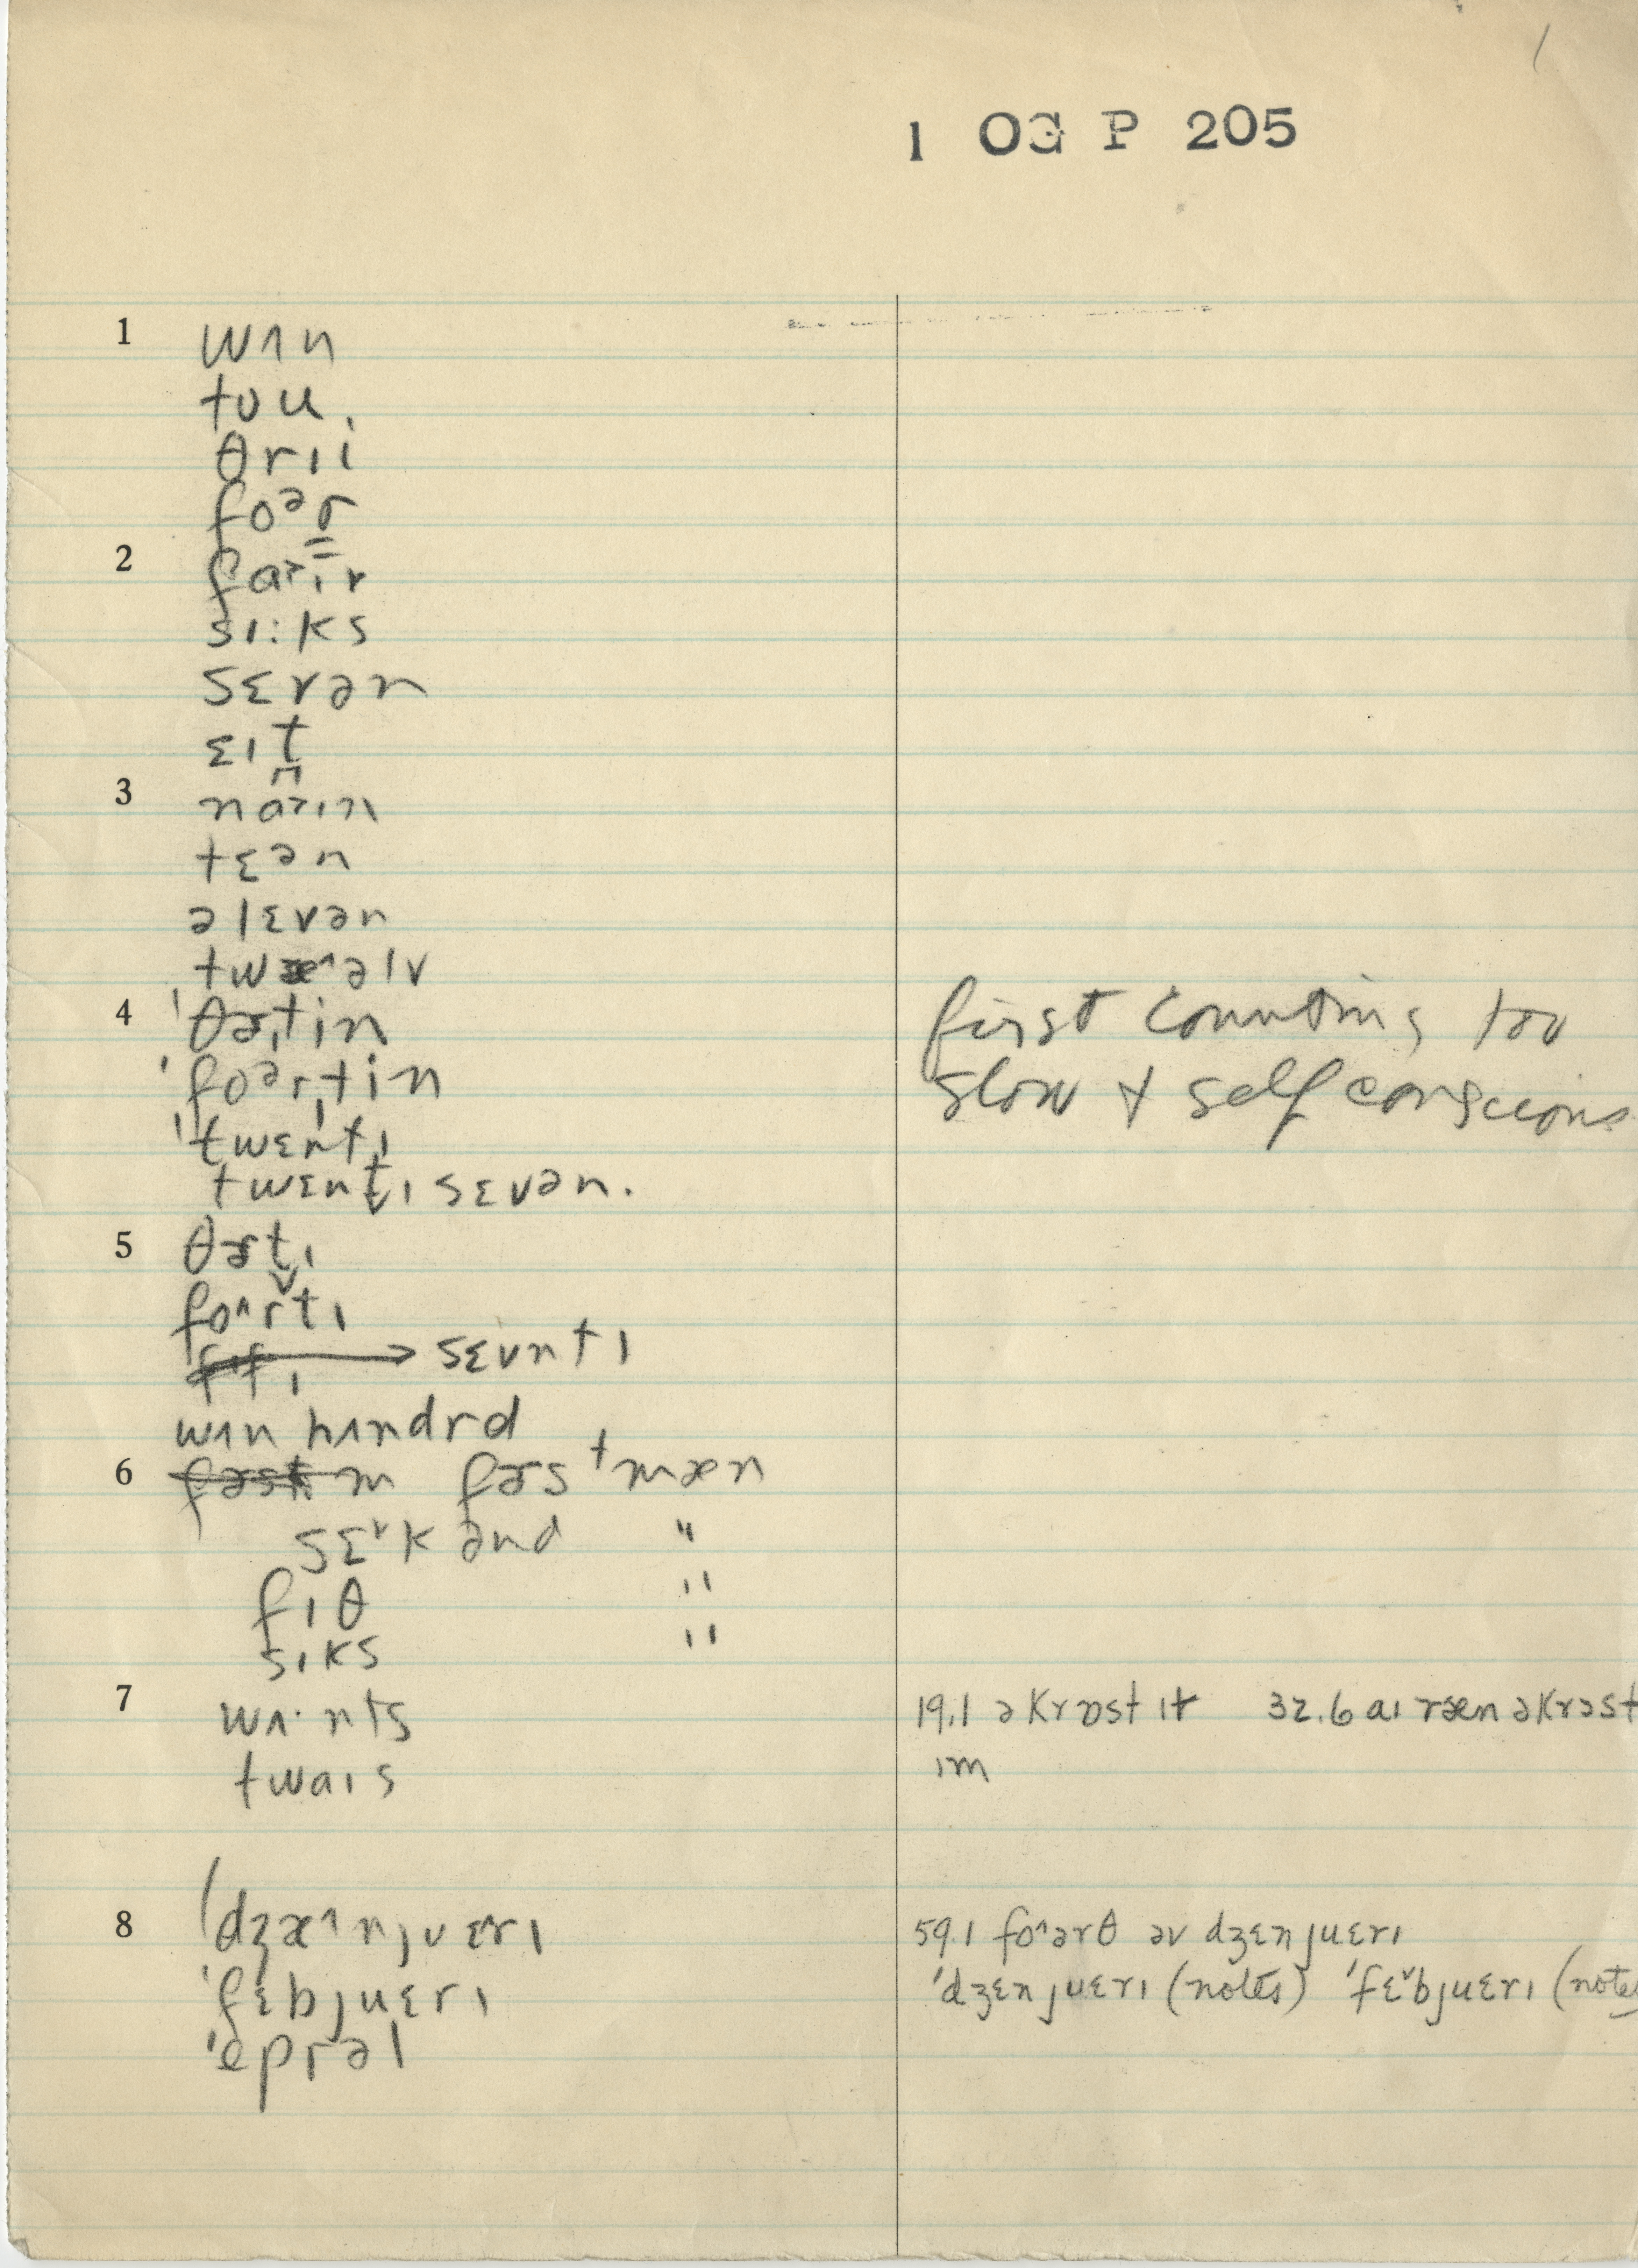 1
1 OG P 205
1 wʌn
tʊu
θrɪi
foᵊr
2 faɪv
sɪ:ks
sɛvən
ɛɪt
3 naɪn
tɛən
əlɛvən
twæ^əlv
4 'θɚtin
'foᵊrtin
'twɛntɪ
twɛntɪ sɛvən.
5 θɚtɪ
fo^rtɪ
fɪfɪ → sɛvntɪ
wʌn hʌndrd
6 fɚst m fɚsᵗmæn
sɛˇkənd "
fɪθ "
sɪks "
7 wʌ·nts
twaɪs
8 'dʒæ^njʊɛrɪ
'fɛbjuɛrɪ
'eprəl
first counting too
slow + self conscious
19.1 əkrɒst ɪt 32.6 aɪ ræn əkrɔst
ɪm
59.1 fo^ərθ əv dʒɛnjuɛrɪ
'dʒɛnjuɛrɪ (notes) 'fɛˇbjuɛrɪ (notes